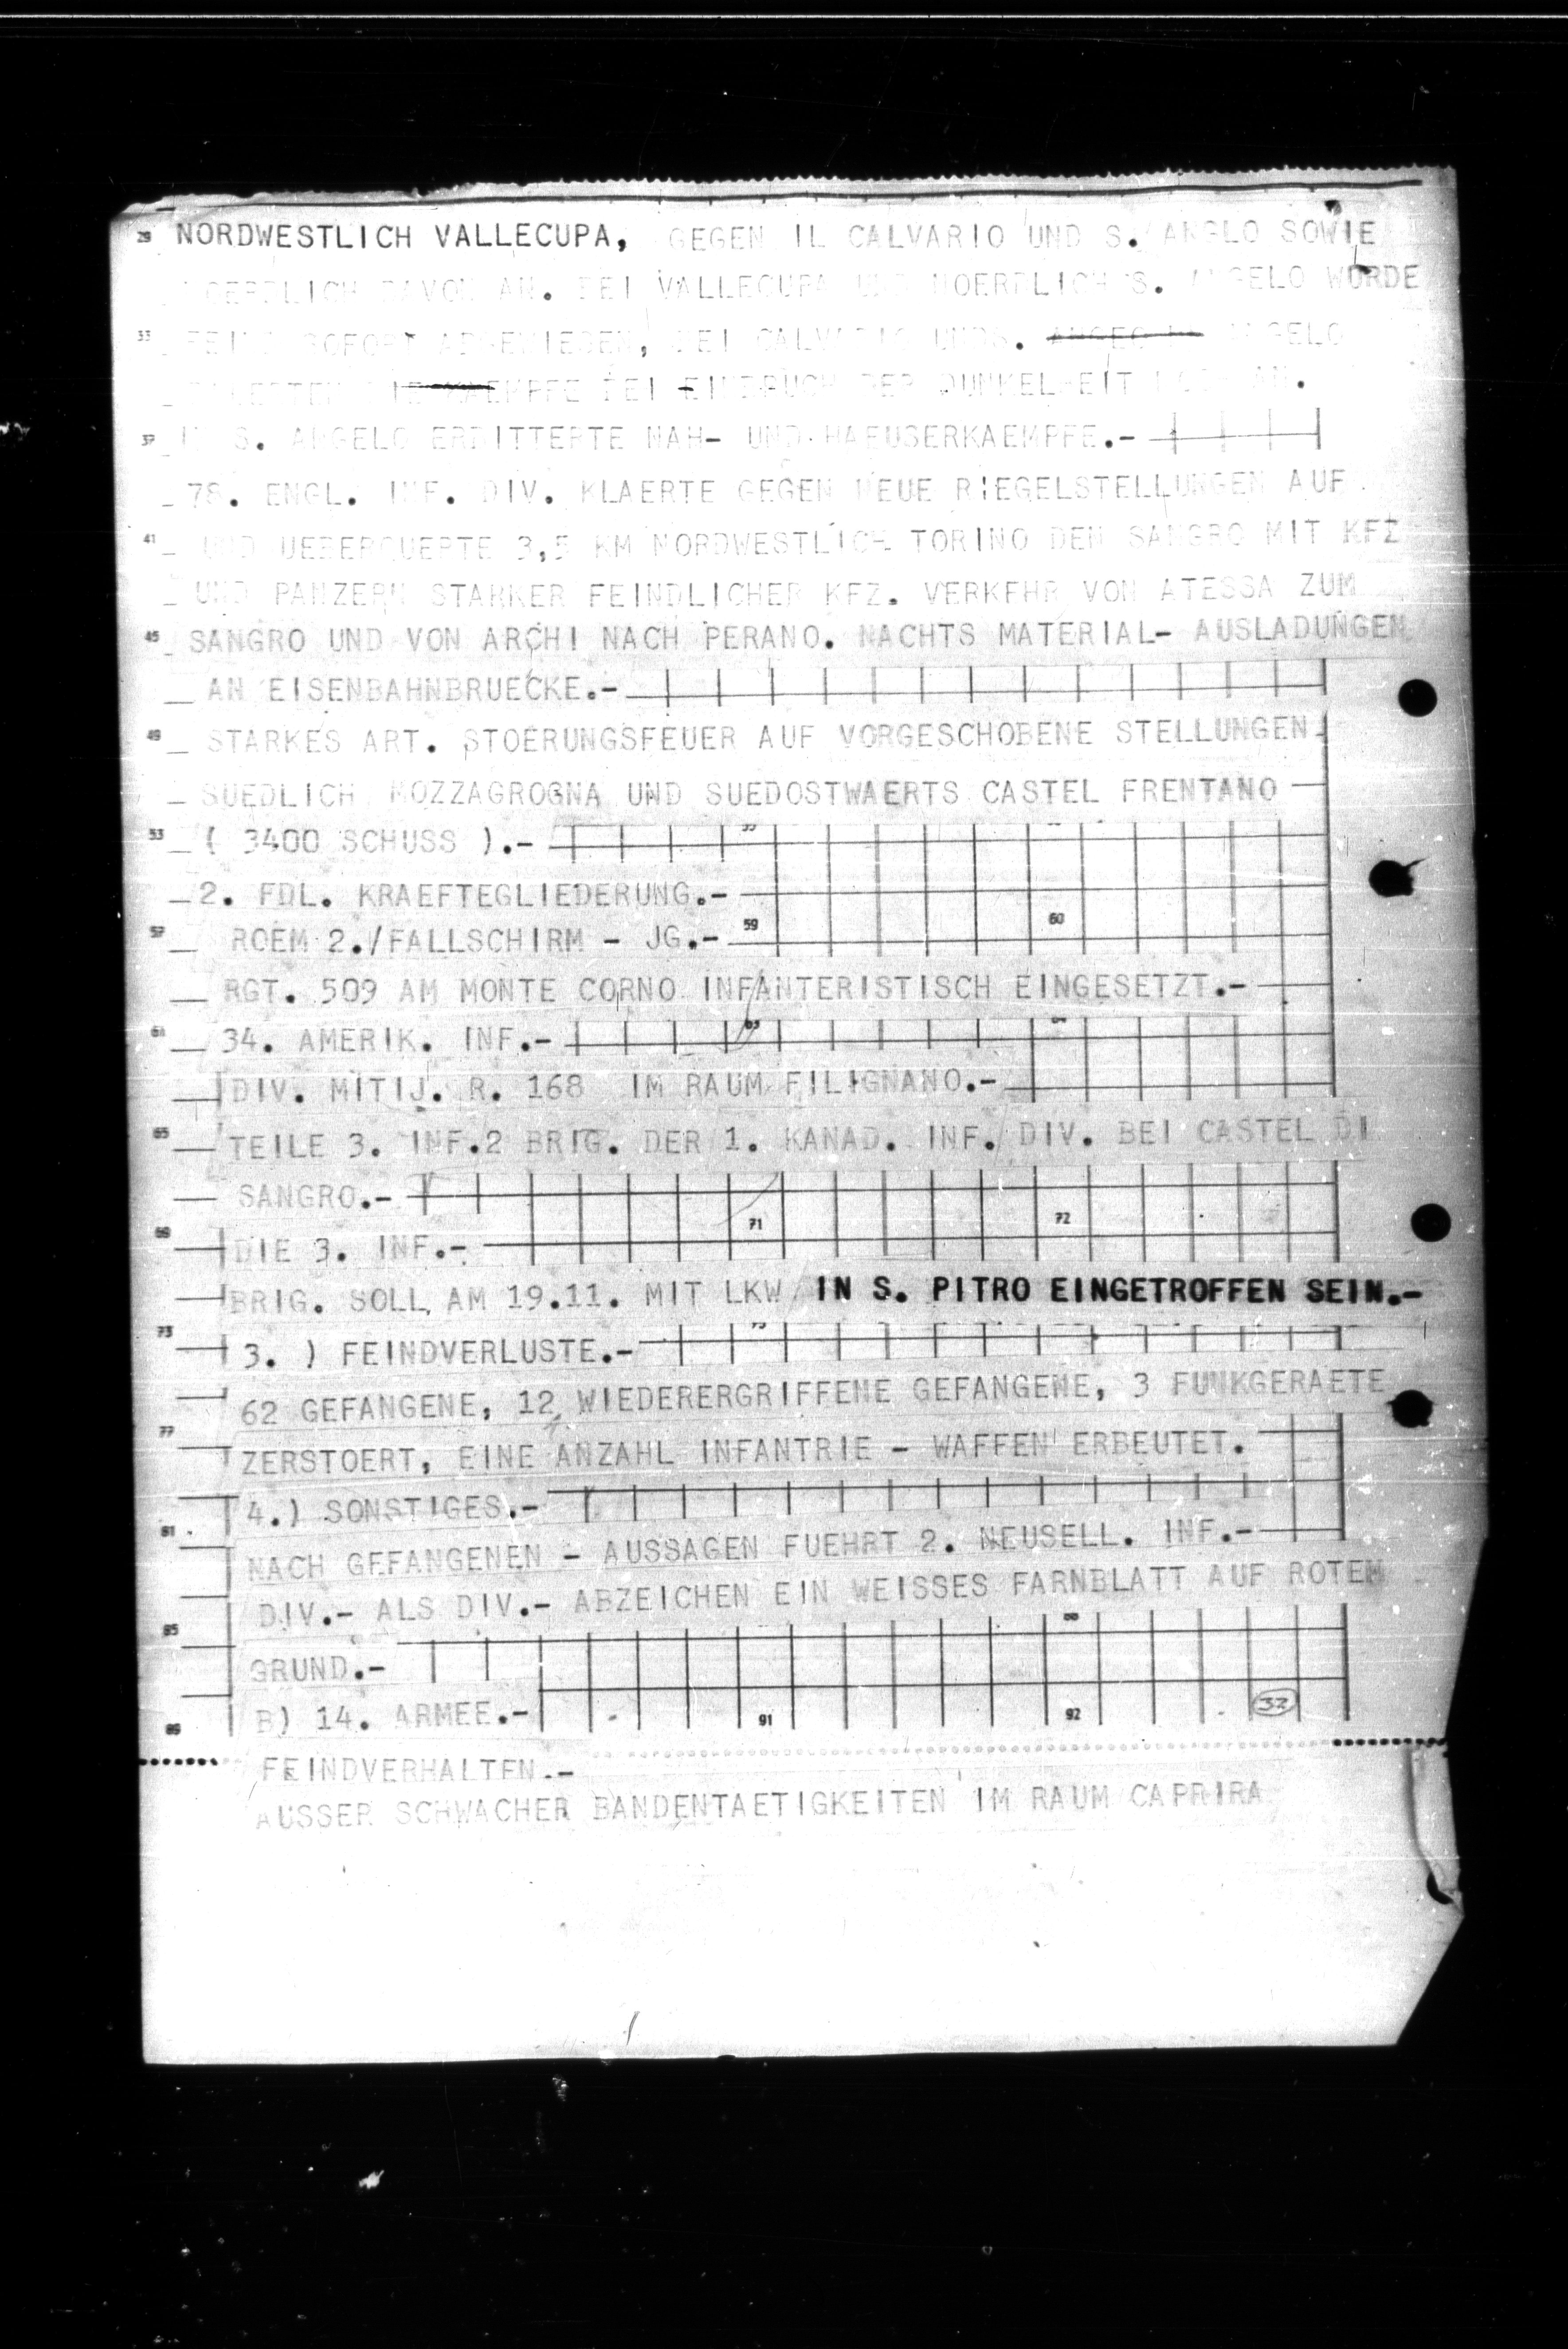 NORDWESTLICH VALLECUPA, GEGEN IL CALVARIO UND S. ANGLO SOWIE
DAVON AN. BEI VALLECUPA UND NOERDLICH S. ANGELO WURDE
FEIND SOFORT ABGEWIESEN, BEI CALVARIO UNDS. ANGELO
KAEMPFE BEI EINBRUCH DER DUNKELHEIT NOCH AN.
IN S. ANGELO ERBITTERTE NAH- UND HAEUSERKAEMPFE.-
78. ENGL. INF. DIV. KLAERTE GEGEN NEUE RIEGELSTELLUNGEN AUF
UND UEBERQUERTE 3,5 KM NORDWESTLICH TORINO DEN SANGRO MIT KFZ
UND PANZERN STARKER FEINDLICHER KFZ. VERKEHR VON ATESSA ZUM
SANGRO UND VON ARCHI NACH PERANO. NACHTS MATERIAL- AUSLADUNGEN
AN EISENBAHNBRUECKE.-
STARKES ART. STOERUNGSFEUER AUF VORGESCHOBENE STELLUNGEN
SUEDLICH MOZZAGROGNA UND SUEDOSTWAERTS CASTEL FRENTANO
( 3400 SCHUSS ).-
2. FDL. KRAEFTEGLIEDERUNG.-
ROEM 2./FALLSCHIRM - JG.-
RGT. 509 AM MONTE CORNO INFANTERISTISCH EINGESETZT.-
34. AMERIK. INF.-
DIV. MITIJ. R. 168 IM RAUM FILIGNANO.-
TEILE 3. INF.2 BRIG. DER 1. KANAD. INF. DIV. BEI CASTEL DI
SANGRO.-
DIE 3. INF.-
BRIG. SOLL AM 19.11. MIT LKW IN S. PITRO EINGETROFFEN SEIN.-
3. ) FEINDVERLUSTE.-
62 GEFANGENE, 12 WIEDERERGRIFFENE GEFANGENE, 3 FUNKGERAETE
ZERSTOERT, EINE ANZAHL INFANTRIE - WAFFEN ERBEUTET.
4.) SONSTIGES.-
NACH GEFANGENEN - AUSSAGEN FUEHRT 2. NEUSELL. INF.-
DIV.- ALS DIV.- ABZEICHEN EIN WEISSES FARNBLATT AUF ROTEM
GRUND.-
B) 14. ARMEE.-
32
FEINDVERHALTEN.-
AUSSER SCHWACHER BANDENTAETIGKEITEN IM RAUM CAPRIRA